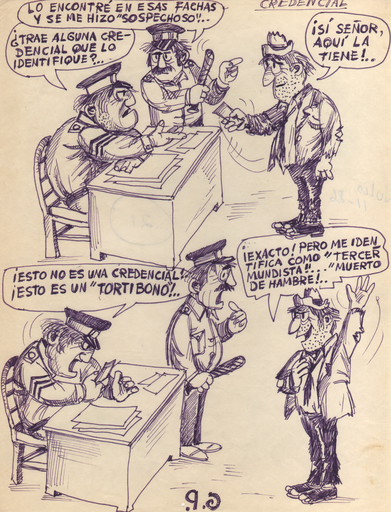 CREDENCIAL
LO ENCONTRÉ EN ESAS FACHAS
Y SE ME HIZO "SOSPECHOSO"...
¿TRAE ALGUNA CRE-
DENCIAL QUE LO
IDENTIFIQUE?...
¡SÍ SEÑOR,
AQUÍ LA
TIENE!..
¡ESTO NO ES UNA CREDENCIAL!
¡ESTO ES UN "TORTIBONO"...
¡EXACTO! PERO ME IDEN
TIFICA COMO "TERCER
MUNDISTA"!..."MUERTO
DE HAMBRE!..